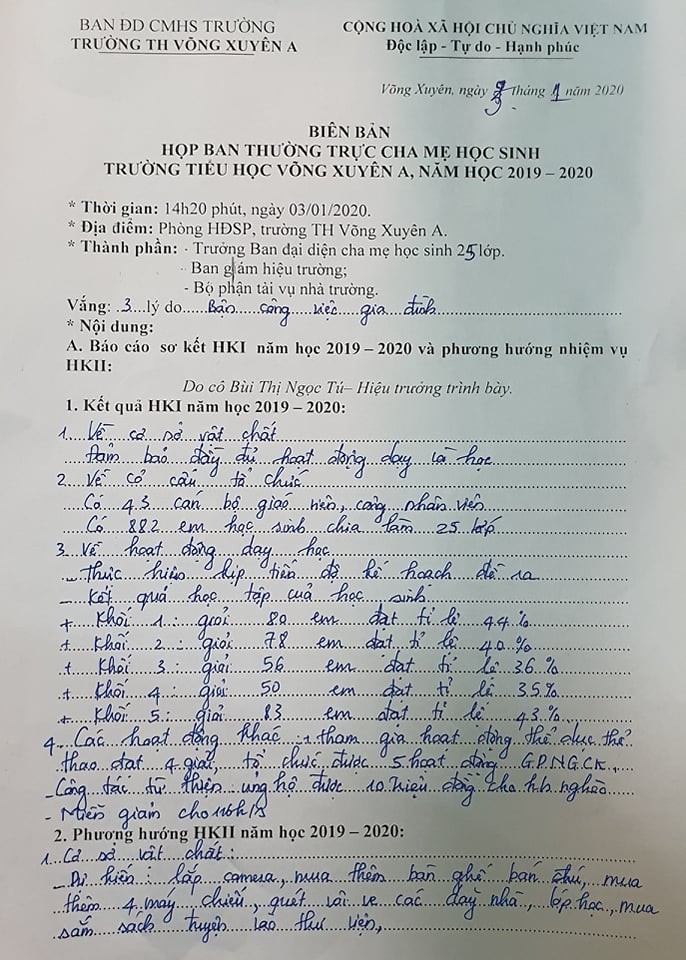 BAN ĐD CMHS TRƯỜNG
TRƯỜNG TH VÕNG XUYÊN A
CỘNG HOÀ XÃ HỘI CHỦ NGHĨA VIỆT NAM
Độc lập - Tự do - Hạnh phúc
Võng Xuyên, ngày 3 tháng 1 năm 2020
BIÊN BẢN
HỌP BAN THƯỜNG TRỰC CHA MẸ HỌC SINH
TRƯỜNG TIỂU HỌC VÕNG XUYÊN A, NĂM HỌC 2019 – 2020
* Thời gian: 14h20 phút, ngày 03/01/2020.
* Địa điểm: Phòng HĐSP, trường TH Võng Xuyên A.
* Thành phần: - Trưởng Ban đại diện cha mẹ học sinh 25 lớp.
- Ban giám hiệu trường;
- Bộ phận tài vụ nhà trường.
Vắng: 3 lý do Bận công việc gia đình
* Nội dung:
A. Báo cáo sơ kết HKI năm học 2019 – 2020 và phương hướng nhiệm vụ
HKII:
Do cô Bùi Thị Ngọc Tú– Hiệu trưởng trình bày.
1. Kết quả HKI năm học 2019 – 2020:
1. Về cơ sở vật chất
Đảm bảo đầy đủ hoạt động dạy và học
2. Về cơ cấu tổ chức
Có 43 cán bộ giáo viên, công nhân viên
Có 882 em học sinh chia làm 25 lớp
3. Về hoạt động dạy học
- Thực hiện kịp tiến độ kế hoạch đề ra
- Kết quả học tập của học sinh
+ Khối 1: giỏi 80 em đạt tỉ lệ 44%
+ Khối 2: giỏi 78 em đạt tỉ lệ 40%
+ Khối 3: giỏi 56 em đạt tỉ lệ 36%
+ Khối 4: giỏi 50 em đạt tỉ lệ 35%
+ Khối 5: giỏi 83 em đạt tỉ lệ 43%
4. Các hoạt động khác: tham gia hoạt động thể dục thể
thao đạt 4 giải, tổ chức được 5 hoạt động GDNGCK,
- Công tác từ thiện ủng hộ được 10 triệu đồng cho h/s nghèo
- Miễn giảm cho h/s
2. Phương hướng HKII năm học 2019 – 2020:
1. Cơ sở vật chất:
- Dự kiến: lắp camera, mua thêm bàn ghế bán trú, mua
thêm 4 máy chiếu, quét vôi ve các dãy nhà, lớp học, mua
sắm sách truyện vào thư viện,